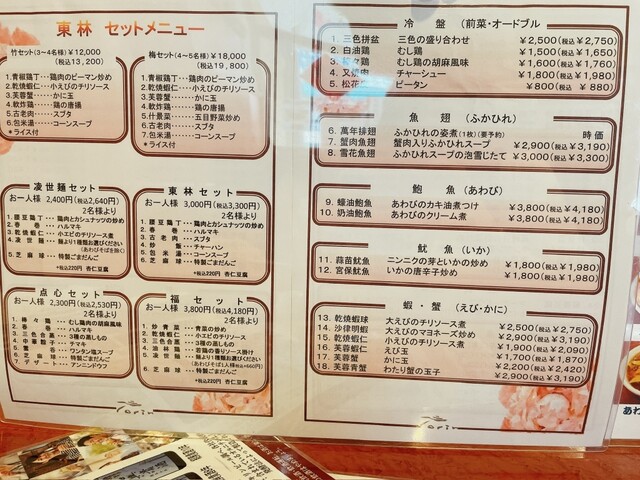 東林 セットメニュー
竹セット(3~4名様) ¥12,000
(税込13,200)
1.青椒鶏丁‥鶏肉のピーマン炒め
2.乾焼蝦仁‥小えびのチリソース
3.芙蓉蟹‥‥かに玉
4.軟炸鶏‥‥鶏の唐揚
5.古老肉‥‥スブタ
6.包米湯‥‥コーンスープ
*ライス付
梅セット(4~5名様) ¥18,000
(税込19,800)
1.青椒鶏丁‥鶏肉のピーマン炒め
2.乾焼蝦仁‥小えびのチリソース
3.芙蓉蟹‥‥かに玉
4.軟炸鶏‥‥鶏の唐揚
5.什景菜‥‥五目野菜炒め
6.古老肉‥‥スブタ
7.包米湯‥‥コーンスープ
*ライス付
凌世麺セット
お一人様 2,400円(税込2,640円)
2名様より
1.腰豆鶏丁:鶏肉とカシュナッツの炒め
2.春巻:ハルマキ
3.乾焼蝦仁:小エビのチリソース煮
4.凌世麺:麺より1種類お選びください
(あわびそばを除く)
5.芝麻球:特製ごまだんご
*税込220円 杏仁豆腐
東林セット
お一人様 3,000円(税込3,300円)
2名様より
1.腰豆鶏丁:鶏肉とカシュナッツの炒め
2.春巻:ハルマキ
3.古老肉:スブタ
4.炒飯:チャーハン
5.包米湯:コーンスープ
6.芝麻球:特製ごまだんご
*税込220円 杏仁豆腐
点心セット
お一人様 2,300円(税込2,530円)
2名様より
1.棒々鶏:むし鶏肉の胡麻風味
2.春巻:ハルマキ
3.三色合蒸:3種の蒸しもの
4.中華粽子:チマキ
5.ワンタン塩スープ
6.芝麻球:特製ごまだんご
7.デザート:アンニンドウフ
福セット
お一人様 3,800円(税込4,180円)
2名様より
1.炒青菜:青菜の炒め
2.乾焼蝦仁:小エビのチリソース
3.三色合蒸:3種の蒸しもの
4.油林鶏:若鶏の香りソース掛け
5.凌世麺:麺より1種類お選びください
(あわびそば1人様税込+660円)
6.芝麻球:特製ごまだんご
*税込220円 杏仁豆腐
Torin
冷盤 (前菜・オードブル
1. 三色拼盆 三色の盛り合わせ ¥2,500(税込¥2,750)
2. 白油鶏 むし鶏 ¥1,500(税込¥1,650)
3. 棒々鶏 むし鶏の胡麻風味 ¥1,600(税込¥1,760)
4. 叉焼肉 チャーシュー ¥1,800(税込¥1,980)
5. 松花 ピータン ¥800(税込¥ 880)
魚翅 (ふかひれ)
6. 萬年排翅 ふかひれの姿煮(1枚)(要予約) 時価
7. 蟹肉魚翅 蟹肉入りふかひれスープ ¥2,900(税込¥3,190)
8. 雪花魚翅 ふかひれスープの泡雪じたて ¥3,000(税込¥3,300)
鮑魚 (あわび)
9. 蠔油鮑魚 あわびのカキ油煮つけ ¥3,800(税込¥4,180)
10. 奶油鮑魚 あわびのクリーム煮 ¥3,800(税込¥4,180)
魷魚 (いか)
11. 蒜苗魷魚 ニンニクの芽といかの炒め ¥1,800(税込¥1,980)
12. 宮保魷魚 いかの唐辛子炒め ¥1,800(税込¥1,980)
蝦・蟹 (えび・かに)
13. 乾焼蝦球 大えびのチリソース煮 ¥2,500(税込¥2,750)
14. 沙律明蝦 大えびのマヨネーズ炒め ¥2,500(税込¥2,750)
15. 乾焼蝦仁 小えびのチリソース煮 ¥1,900(税込¥2,090)
16. 芙蓉蝦仁 えび玉 ¥1,700(税込¥1,870)
17. 芙蓉蟹 かに玉 ¥2,200(税込¥2,420)
18. 芙蓉青蟹 わたり蟹の玉子 ¥2,900(税込¥3,190)
Torin
あわ